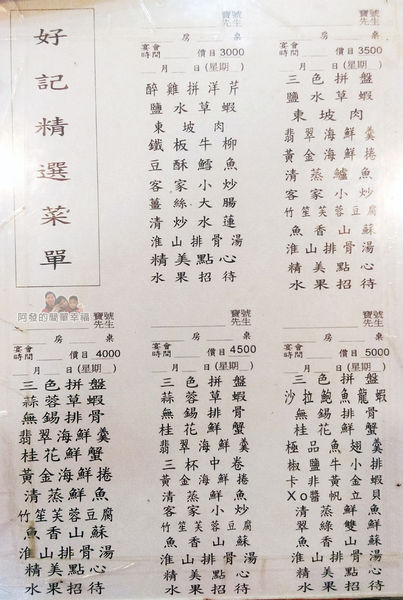 好記精選菜單
寶號
先生
房 桌
宴會時間 價目3000
月 日(星期 )
醉雞拼洋芹
鹽水草蝦
東坡肉
鐵板牛柳
豆酥鱈魚
客家小炒
薑絲大腸
清炒水蓮
淮山排骨湯
精美點心
水果招待
寶號
先生
房 桌
宴會時間 價目3500
月 日(星期 )
三色拼盤
鹽水草蝦
東坡肉
翡翠海鮮羹
黃金海鮮捲
清蒸鱸魚
客家小炒
竹笙芙蓉豆腐
魚香山蘇
淮山排骨湯
精美點心
水果招待
阿發的簡單幸福
寶號
先生
房 桌
宴會時間 價目4000
月 日(星期 )
三色拼盤
蒜蓉草蝦
無錫排骨
翡翠海鮮羹
桂花鮮蟹
黃金海鮮捲
清蒸鮮魚
竹笙芙蓉豆腐
魚香山蘇
淮山排骨湯
精美點心
水果招待
寶號
先生
房 桌
宴會時間 價目4500
月 日(星期 )
三色拼盤
蒜蓉草蝦
無錫排骨
桂花鮮蟹
翡翠海鮮羹
三杯中卷
黃金海鮮捲
清蒸鮮魚
客家小炒
竹笙芙蓉豆腐
魚香山蘇
淮山排骨湯
精美點心
水果招待
寶號
先生
房 桌
宴會時間 價目5000
月 日(星期 )
三色拼盤
沙拉鮑魚龍蝦
無錫排骨
桂花鮮蟹
極品魚翅羹
椒鹽牛小排
卡非黃金蝦
Xo醬帆立貝
清蒸鮮魚
翠綠雙鮮
魚香山蘇
淮山排骨湯
精美點心
水果招待